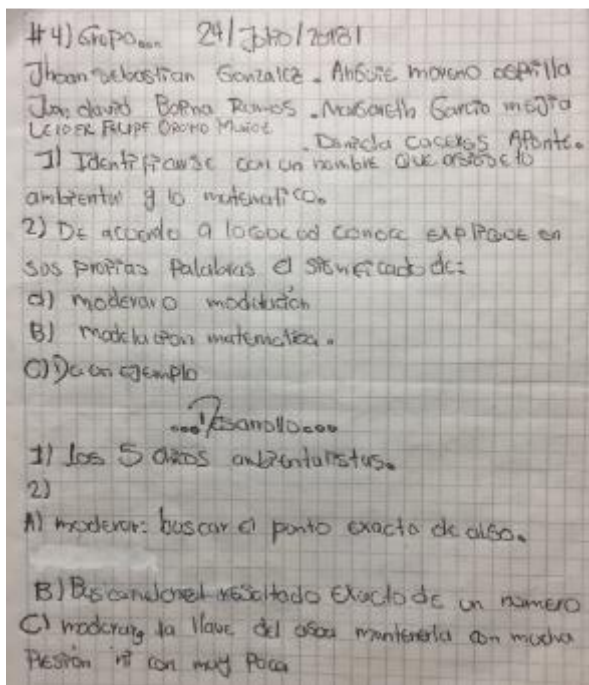 #4) Grupo... 24/Julio/2018/
Jhoan Sebastian Gonzalez. Angie moreno
Juan david Ramos. Margareth Garcia mejia
LEIDER FELIPE MUÑOZ
. Daniela Caceres Aponte.
1) Identifiquense con un nombre que asigne lo
ambiental y lo matematico.
2) De acuerdo a lo que ud conoce explique en
sus propias palabras el significado de:
a) moderar o modulación
B) modelacion matematica.
C) De un ejemplo
...Desarrollo...
1) los 5 ambientalistas.
2)
A) moderar: buscar el punto exacto de algo.
B) Buscando el resultado exacto de un numero
C) moderar la llave del agua mantenerla con mucha
presión ni con muy poca